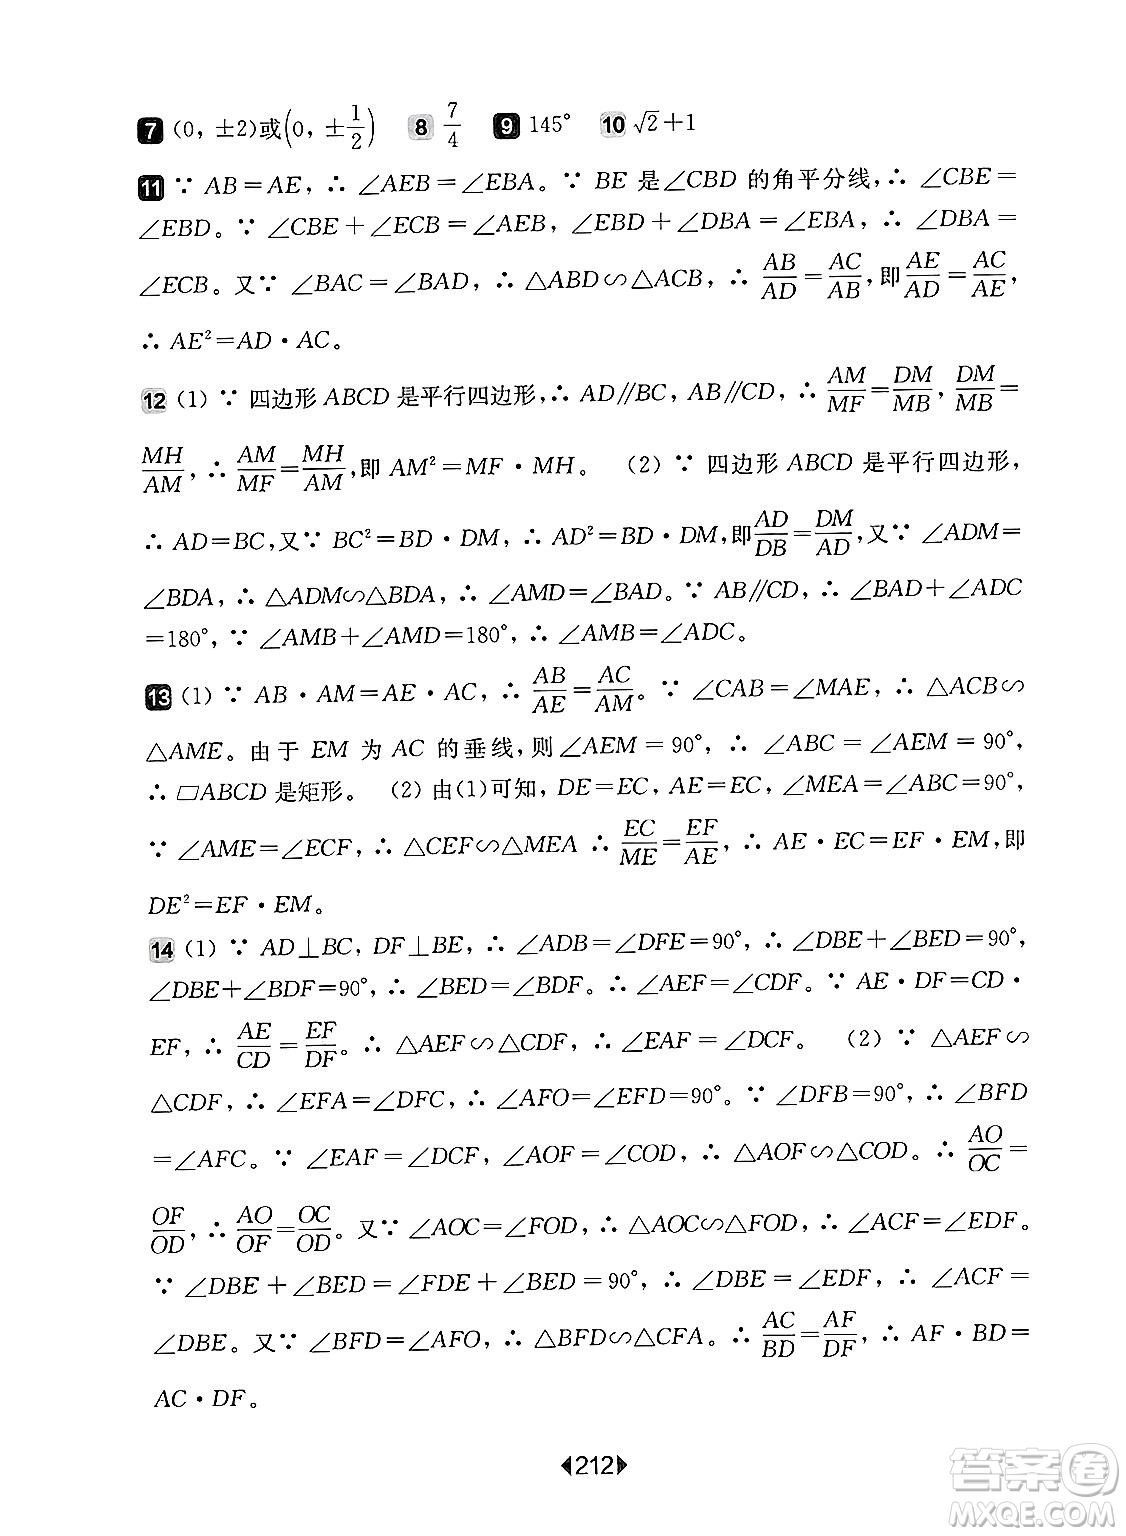 7 (0, ±2)或(0, ±1/2) 8 7/4 9 145° 10 √2+1
11 ∵ AB=AE, ∴ ∠AEB=∠EBA。∵ BE 是∠CBD 的角平分线, ∴ ∠CBE=
∠EBD。∵ ∠CBE+∠ECB=∠AEB, ∠EBD+∠DBA=∠EBA, ∴ ∠DBA=
∠ECB。又∵ ∠BAC=∠BAD, ∴ △ABD∽△ACB, ∴ AB/AD=AC/AB, 即AE/AD=AC/AE,
∴ AE²=AD·AC。
12 (1) ∵ 四边形 ABCD 是平行四边形, ∴ AD∥BC, AB∥CD, ∴ AM/MF=DM/MB, DM/MB=
MH/AM, ∴ AM/MF=MH/AM, 即 AM²=MF·MH。 (2) ∵ 四边形 ABCD 是平行四边形,
∴ AD=BC, 又∵ BC²=BD·DM, ∴ AD²=BD·DM, 即AD/DB=DM/AD, 又∵ ∠ADM=
∠BDA, ∴ △ADM∽△BDA, ∴ ∠AMD=∠BAD。∵ AB∥CD, ∴ ∠BAD+∠ADC
=180°, ∵ ∠AMB+∠AMD=180°, ∴ ∠AMB=∠ADC。
13 (1) ∵ AB·AM=AE·AC, ∴ AB/AE=AC/AM。∵ ∠CAB=∠MAE, ∴ △ACB∽
△AME。由于 EM 为 AC 的垂线, 则∠AEM=90°, ∴ ∠ABC=∠AEM=90°,
∴ ▱ABCD 是矩形。 (2) 由(1)可知, DE=EC, AE=EC, ∠MEA=∠ABC=90°,
∵ ∠AME=∠ECF, ∴ △CEF∽△MEA ∴ EC/ME=EF/AE, ∴ AE·EC=EF·EM, 即
DE²=EF·EM。
14 (1) ∵ AD⊥BC, DF⊥BE, ∴ ∠ADB=∠DFE=90°, ∴ ∠DBE+∠BED=90°,
∠DBE+∠BDF=90°, ∴ ∠BED=∠BDF。∴ ∠AEF=∠CDF。∵ AE·DF=CD·
EF, ∴ AE/CD=EF/DF。∴ △AEF∽△CDF, ∴ ∠EAF=∠DCF。 (2) ∵ △AEF∽
△CDF, ∴ ∠EFA=∠DFC, ∴ ∠AFO=∠EFD=90°。∵ ∠DFB=90°, ∴ ∠BFD
=∠AFC。∵ ∠EAF=∠DCF, ∠AOF=∠COD, ∴ △AOF∽△COD。∴ AO/OC=
OF/OD, ∴ AO/OF=OC/OD。又∵ ∠AOC=∠FOD, ∴ △AOC∽△FOD, ∴ ∠ACF=∠EDF。
∵ ∠DBE+∠BED=∠FDE+∠BED=90°, ∴ ∠DBE=∠EDF, ∴ ∠ACF=
∠DBE。又∵ ∠BFD=∠AFO, ∴ △BFD∽△CFA。∴ AC/BD=AF/DF, ∴ AF·BD=
AC·DF。
212
答案卷
MXQE.COM